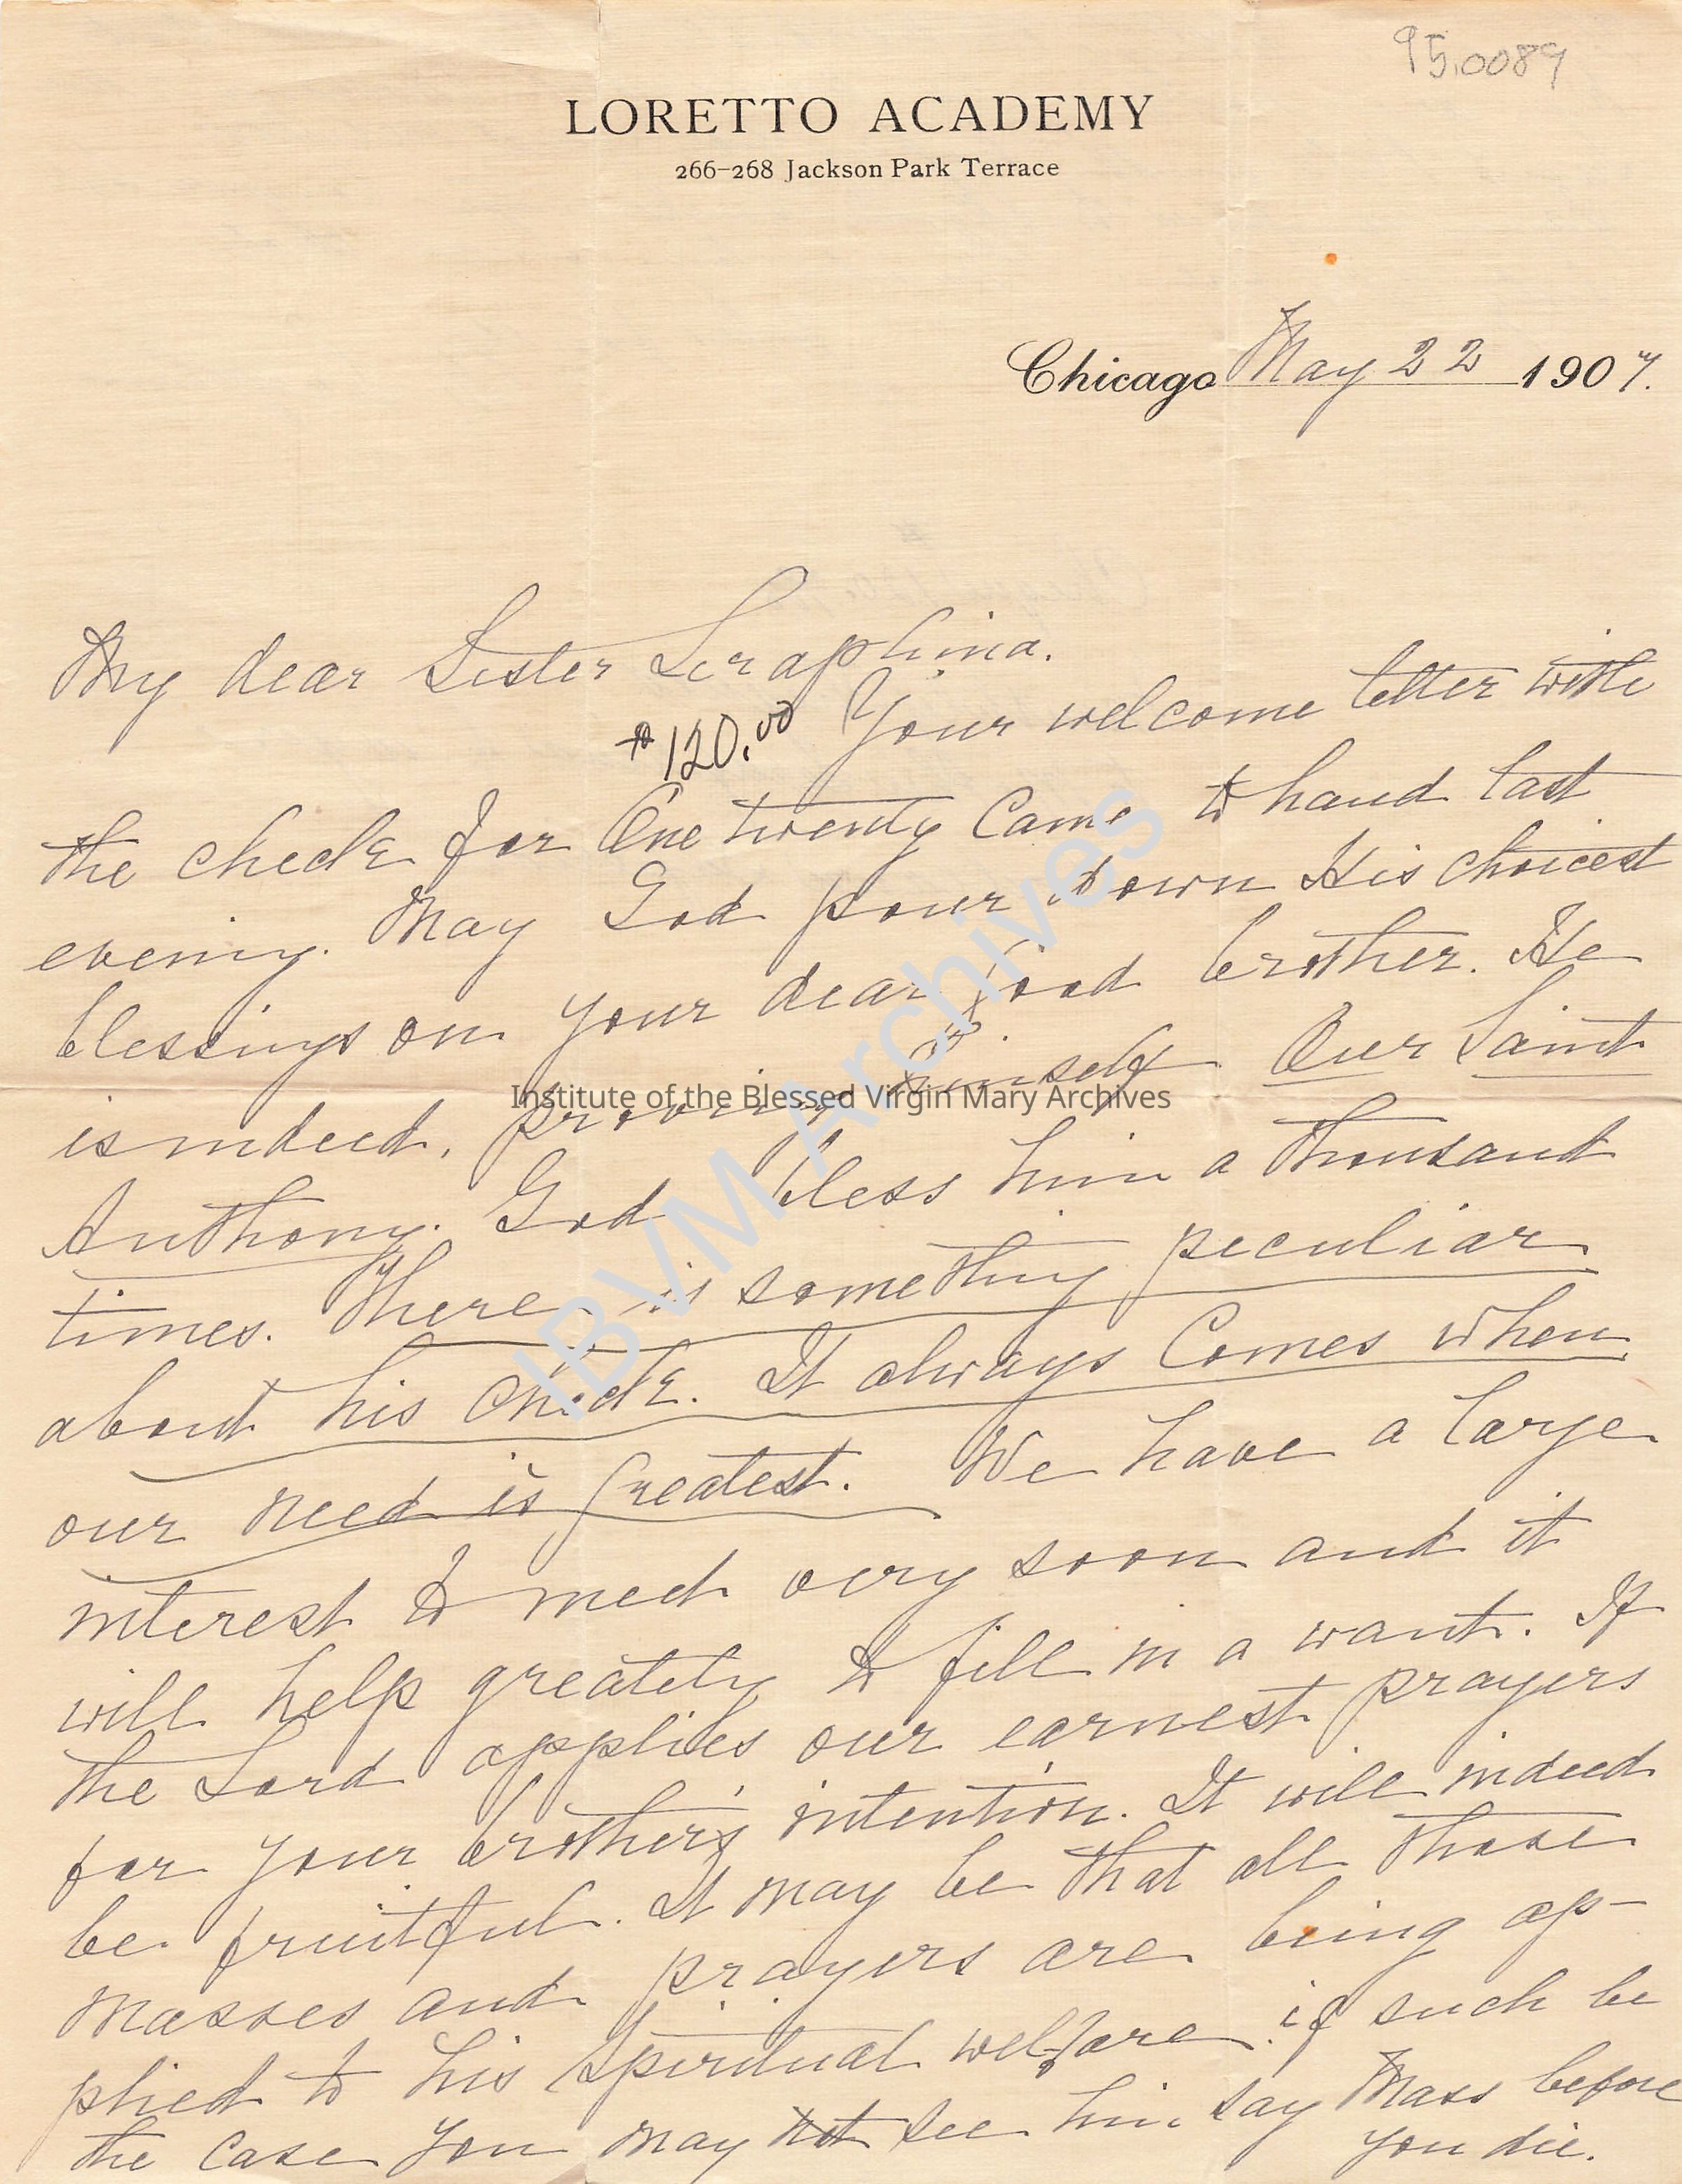 95.0089
LORETTO ACADEMY
266–268 Jackson Park Terrace
Chicago May 22 1907.
My dear Sister Seraphina.
$120.00 Your welcome letter with
the check for One twenty Came to hand last
evening. May God pour down His choicest
blessings on your dear good brother. He
is indeed, proving himself Our Saint
Institute of the Blessed Virgin Mary Archives
IBVM Archives
Anthony. God bless him a thousand
times. There is something peculiar
about his check. It always Comes when
our need is greatest. We have a large
interest to meet very soon and it
will help greately to fill in a want. If
the Lord applies our earnest prayers
for your brother's intention. It will indeed
be fruitful. It may be that all those
Masses and prayers are being ap-
plied to his spiritual welfare. if such be
the case you may not see him say Mass before
you die.